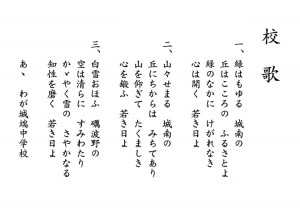 校歌
一、緑はもゆる 城南の
丘はこころの ふるさとよ
緑のなかに けがれなき
心は開く 若き日よ
二、山々せまる 城南の
丘にちからは みちてあり
山を仰ぎて たくましき
心を鍛ふ 若き日よ
三、白雪おほふ 礪波野の
空は清らに すみわたり
かゞやく雪の さやかなる
知性を磨く 若き日よ
あゝ わが城端中学校